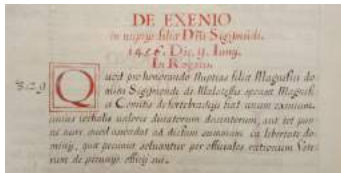 DE EXENIO
in nuptijs filiæ Dñi Sigismundi.
1456. Die. 9. Iunij.
In Rogatis
Quod pro honorando Nuptias filiæ Magnifici do
mini Sigismundi de Malatestis Comitis
unius valoris ducatorum ducentorum, aut tot pan
ni auri, quod ascendat ad dictam summam cu libertate do
minij, quæ pecunia solvantur per officiales rationum Vete
rum de pecunijs officij sui.